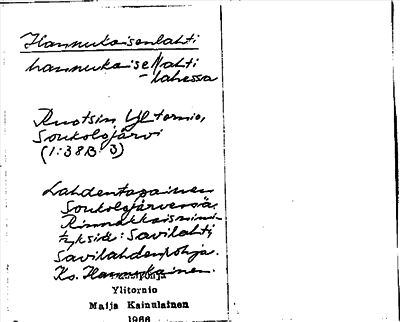 Hannukaisenlahti
hannukaisellahti
- lahessa
Ruotsin Yl tornio,
Soukolojärvi
(1:38B 3)
Lahdentapainen
Soukolojärvessä.
Rinnakkaisnimi-
tyksiä: Savilahti,
Savilahdenpohja.
Ks. Hannukainen.
Ylitornio
Maija Kainulainen
1966